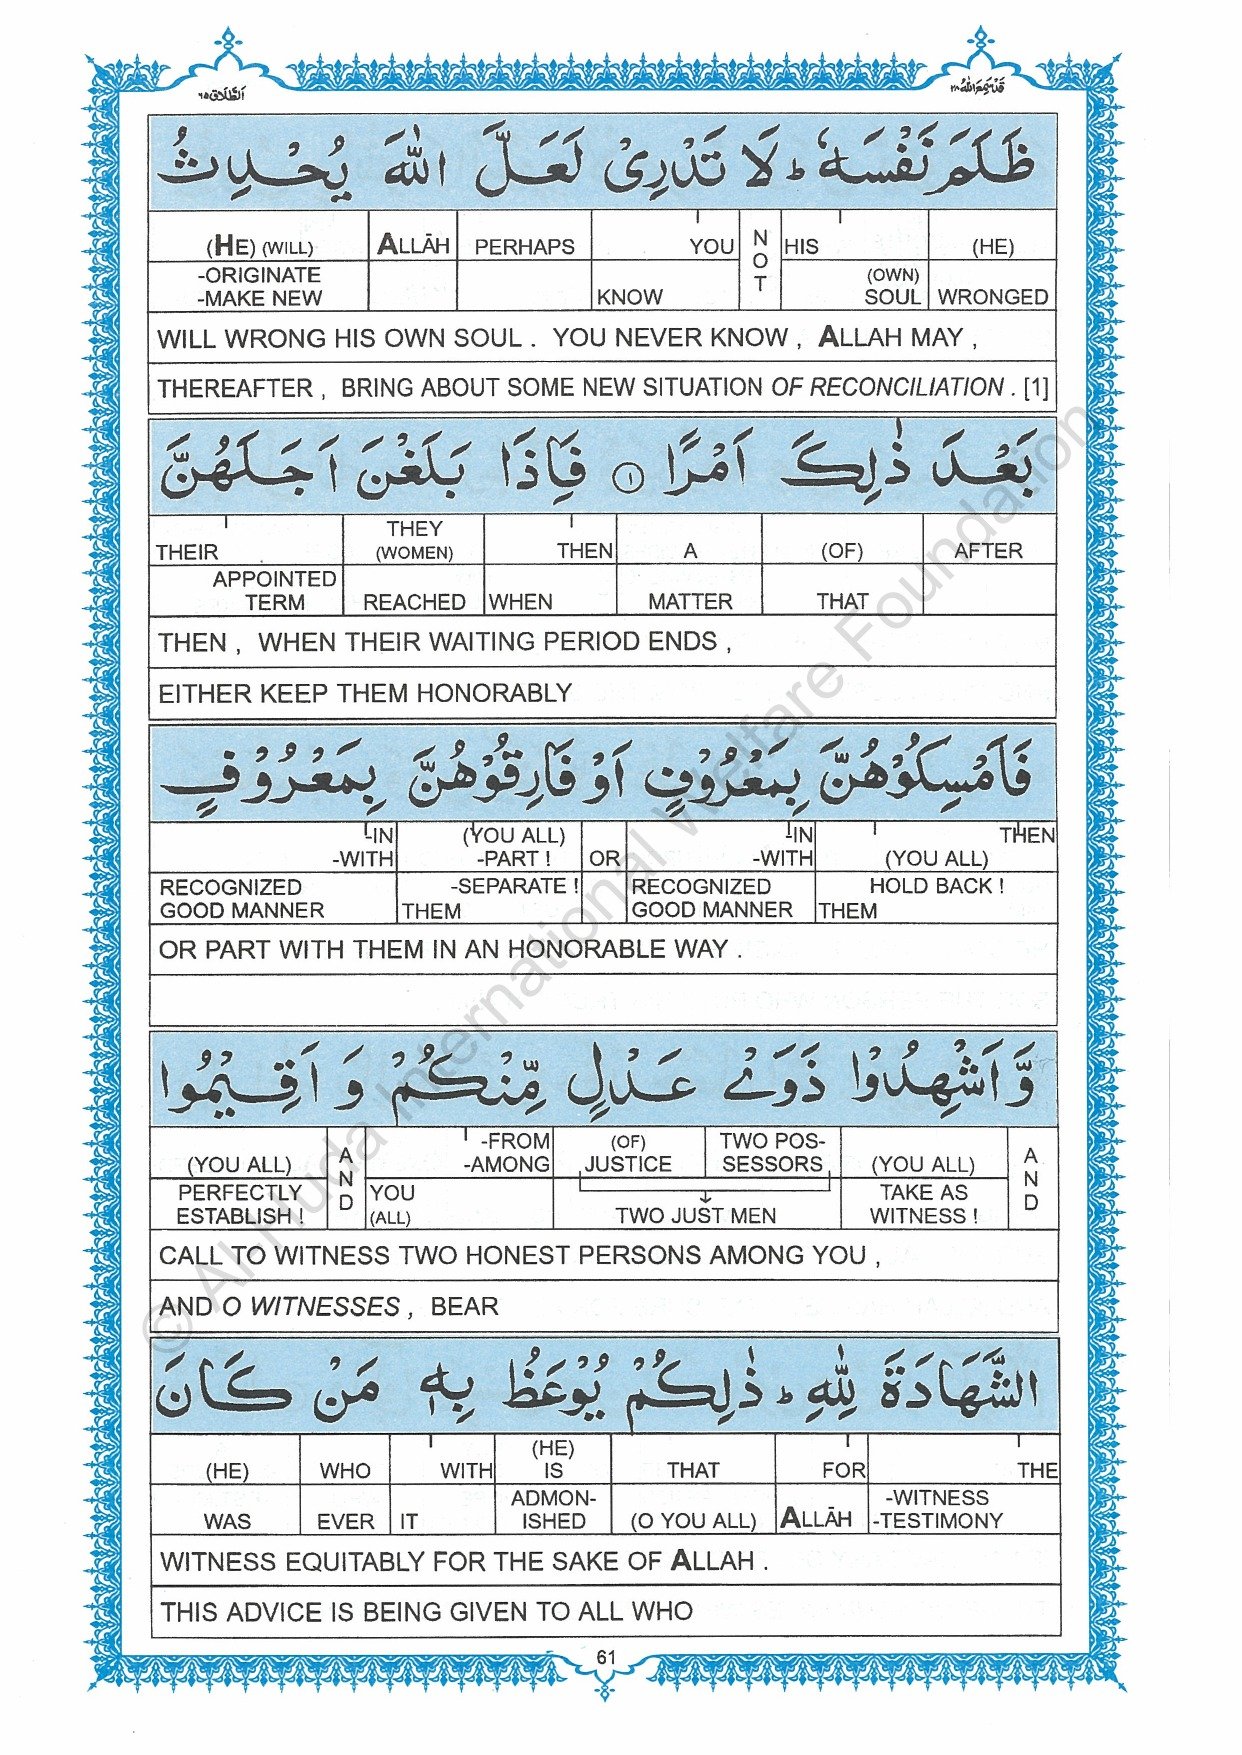 الطلاق ٦٥
قد سمع الله ٢٨
ظَلَمَ نَفْسَهٗ ؕ لَا تَدْرِیْ لَعَلَّ اللّٰهَ یُحْدِثُ
(HE) (WILL) ALLĀH PERHAPS YOU NOT HIS (HE)
-ORIGINATE
-MAKE NEW KNOW (OWN) SOUL WRONGED
WILL WRONG HIS OWN SOUL . YOU NEVER KNOW , ALLAH MAY ,
THEREAFTER , BRING ABOUT SOME NEW SITUATION OF RECONCILIATION . [1]
بَعْدَ ذٰلِكَ اَمْرًا ۝۱ فَاِذَا بَلَغْنَ اَجَلَهُنَّ
THEIR THEY (WOMEN) THEN A (OF) AFTER
APPOINTED TERM REACHED WHEN MATTER THAT
THEN , WHEN THEIR WAITING PERIOD ENDS ,
EITHER KEEP THEM HONORABLY
فَاَمْسِكُوْهُنَّ بِمَعْرُوْفٍ اَوْ فَارِقُوْهُنَّ بِمَعْرُوْفٍ
-IN (YOU ALL) -IN THEN
-WITH -PART ! OR -WITH (YOU ALL)
RECOGNIZED -SEPARATE ! RECOGNIZED HOLD BACK !
GOOD MANNER THEM GOOD MANNER THEM
OR PART WITH THEM IN AN HONORABLE WAY .
وَّ اَشْهِدُوْا ذَوَیْ عَدْلٍ مِّنْكُمْ وَ اَقِیْمُوا
(YOU ALL) AND -FROM (OF) TWO POS- (YOU ALL) AND
-AMONG JUSTICE SESSORS
PERFECTLY YOU TAKE AS
ESTABLISH ! (ALL) TWO JUST MEN WITNESS !
CALL TO WITNESS TWO HONEST PERSONS AMONG YOU ,
AND O WITNESSES , BEAR
الشَّهَادَةَ لِلّٰهِ ؕ ذٰلِكُمْ یُوْعَظُ بِهٖ مَنْ كَانَ
(HE) WHO WITH (HE) IS THAT FOR THE
WAS EVER IT ADMON-ISHED (O YOU ALL) ALLĀH -WITNESS
-TESTIMONY
WITNESS EQUITABLY FOR THE SAKE OF ALLAH .
THIS ADVICE IS BEING GIVEN TO ALL WHO
61
© Al-Huda International Welfare Foundation